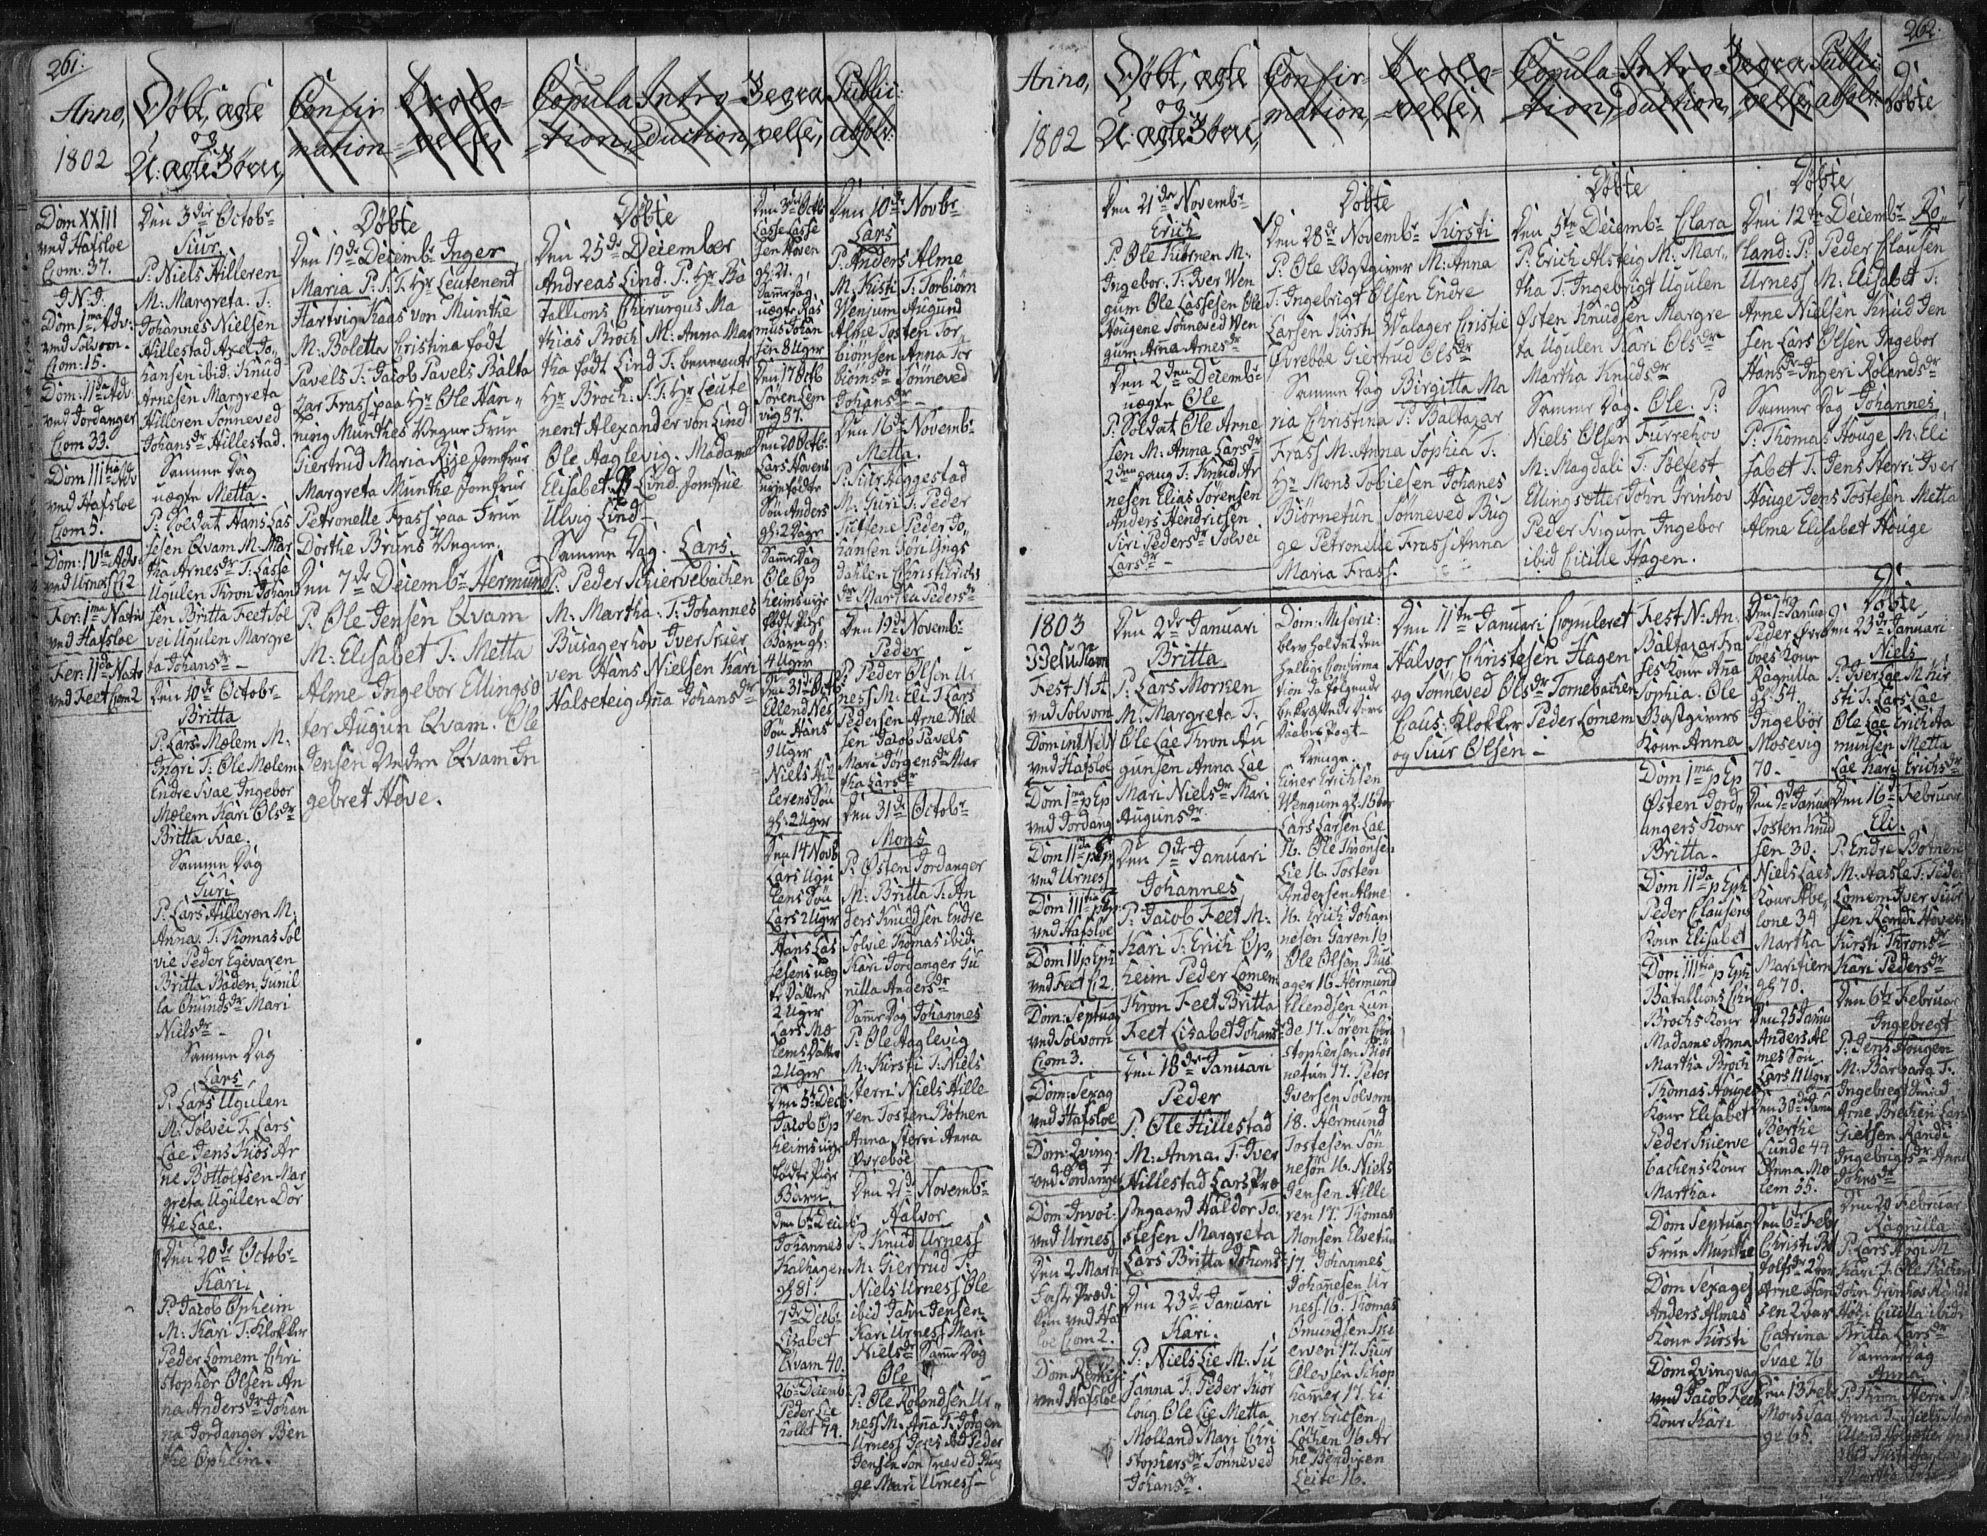 261.
Anno,
1802
Døbt, ægte
og
U:ægte Børn,
Confir
mation
Trolo-
velse,
Copula
tion,
Intro-
duction,
Begra
velse,
Publi:
absolv:
Dom XXIII
ved Hafsloe
Com. 37.
J. N. J.
Dom 1ma Adv:
ved Solvorn.
Com: 15.
Dom: IIda Adv.
ved Jordanger
Com 33.
Dom IIItia Adv
ved Hafsloe
Com 5.
Dom: IVta Adv:
ved Urnæs C: 2
Fer: 1ma Nativ
ved Hafsloe
Fer: IIda Nativ
ved Feet Com 2
Den 3die Octobr
Siur
P: Niels Hilleren
M: Margreta. T:
Johannes Nielsen
Hillestad Axel Jo-
hansen ibid. Knud
Arnesen Margreta
Hilleren Sönneved
Johansdr Hillestad.
Samme Dag
uægte Metta.
P: Soldat Hans Las
sesen Qvam M: Mar
tha Arnesdr T: Lasse
Ugulen Thron Johan
sen Britta Feet Sol
vei Ugulen Margre
ta Johansdr
Den 10de Octobr
Britta
P: Lars Mælem M:
Ingri T: Ole Mælem
Endre Svae Ingebor
Mælem Kari Olsdr
Britta Svae.
Samme Dag
Guri
P: Lars Hilleren M:
Anna. T: Thomas Sol
vie Peder Egevaren
Britta Baden, Gunil
la Omundsdr Mari
Nielsdr
Samme Dag
Lars
P: Lars Ugulen
M: Solvei T: Lars
Lae Jens Kiøs Ar
ne Bottolfsen Mar
greta Ugulen Dor
the Lae.
Den 20de Octobr
Kari.
P: Jacob Opheim
M: Kari T: Klokker
Peder Lomem Chri
stopher Olsen An
na Andersdr Johan
na Jordanger Ben
the Opheim.
Døbte
Den 19de Decembr Inger
Maria P: S: T: Hr Leutenent
Hartvig Kaas von Munthe
M: Boletta Cristina født
Pavels T: Jacob Pavels Balta
zar Frass paa Hr Ole Han-
ning Munthes Vegne Frue
Giertrud Maria Rize Jomfrue
Margreta Munthe Jomfrue
Petronelle Frass paa Frue
Dorthe Bruns Vegne.
Den 7de Decembr Hermund
P: Ole Jensen Qvam
M: Elisabet T: Metta
Alme Ingebor Ellingsö
ter Augun Qvam. Ole
Jensen Nedre Qvam In
gebret Hove.
Døbte
Den 25de December
Andreas Lind. P: Hr Ba
tallions Chirurgus Ma
thias Broch M: Anna Mar
tha født Lind T: bemeldte
Hr Broch. S: T: Hr Leute
nent Alexander von Lind
Ole Aaglevig. Madame
Elisabet Lind Jomfrue
Ulvig Lind
Samme Dag. Lars.
P: Peder Skiervebachen
M: Martha. T: Johannes
Busagerhov Iver Skier
ven Hans Nielsen Kari
Halseteig Ana Johansdr
Den 3de Octb
Lasse Lasse
sen Hoven
gl: 21.
Samme Dag
uægte Ras
mus Johan
sen 8 Uger
Den 17 Octb
Sören Lem
vig 37.
Den 20 Octb
Lars Hovens
nyefødte
Søn Anders
gl: 2 Dage
Samme Dag
Ole Op
heims nye
født Pige
Barn gl:
4 Uger
Den 31de Octb
Ellend Næs
Søn Hans
9 Uger
Niels Hil
lerens Søn
gl: 2 Uger
Den 14 Novb
Lars Ugu
lens Søn
Lars 2 Uger
Hans Las
sesens uæg
te Datter
2 Uger
Lars Mæ
lems Datter
2 Uger
Den 5te Dec
Jacob Op
heims nye
fødte Pige
Barn
Den 6te Decbr
Johannes
Kalhagen
gl 81.
7de Decb
Lisabet
Qvam 40.
26de Decemb
Peder Lie
rollet 74.
Den 10de Novbr
Lars
P: Anders Alme
M: Kisti T: Torbiørn
Wensum Augund
Alme Tosten Tor
biørnsen Anna Tor
biørnsdr Sönneved
Johansdr
Den 16de Novembr
Metta.
P: Siur Heggestad
M: Guri T: Peder
Tuftene Peder Jo
hansen Jöri Ings
dahlen Christi Erichs
dr Martha Pedersdr
Den 19de Novembr
Peder
P: Peder Olsen Ur
næss M: Eli T: Lars
Pedersen Arne Niel
sen Jacob Pavels
Mari Jörgensdr Mar
tha Larsdr
Den 31de Octobr
Mons
P: Østen Jordanger
M: Britta T: An
ders Knudsen Endre
Solvie Thomas ibid.
Kari Jordanger Gu
nilla Andersdr
Samme Dag Johannes
P: Ole Aaglevig
M: Kirsti T: Niels
Herri Niels Hille
ren Tosten Botnen
Anna Herri Anna
Øvrebøe
Den 21de Novembr
Halvor
P: Knud Urness
M: Giertrud T:
Niels Urness Ole
ibid John Jensen
Kari Urness Mari
Nielsdr Samme Dag
Ole
P: Ole Rolandsen Ur-
ness M: Ana T: Jörgen
Urness Jens Peder
Jensen Sönneved Bug
ge Mari Urness
262.
Anno,
1802
Døbt, ægte
og
U:ægte Børn,
Confir-
mation,
Trolo-
velse,
Copula-
tion,
Intro-
duction,
Begra
velse,
Publi:
absolv:
Døbte
Den 21de Novembr
Erich
P: Ole Kiörnen M:
Ingebor. T: Iver Wen
gum Ole Lassesen Ole
Hougene Sönneved Wen
gum Anna Arnesdr
Den 2den Decembr
uægte Ole
P: Soldat Ole Arne
sen M: Anna Larsdr
2den gang T: Knud Ar
nesen Elias Sörensen
Anders Hendricsen
Siri Pedersdr Solvei
Larsdr
Døbte
Den 28de Novembr Kirsti
P: Ole Bøstgiver M: Anna
T: Ingebrigt Olsen Endre
Larsen Kirsti Walager Cristie
Övrebøe Giertrud Olsdr
Samme Dag Birgitta Ma
ria Christina P: Baltazar
Frass M: Anna Sophia T:
Hr Mons Tobiesen Johanes
Biörnetun, Sönneved Bug
ge Petronelle Frass Anna
Maria Frass.
Døbte
Den 5te Decembr Clara
P: Erich Alsteig M: Mar-
tha T: Ingebrigt Ugulen
Østen Knudsen Margre
ta Ugulen Kari Olsdr
Martha Knudsdr
Samme Dag. Ole P:
Niels Olsen Furrehov
M: Magdali T: Solfest
Ellingsøtter John Grinhov
Peder Svigum, Ingebor
ibid Cicille Hagen.
Døbte
Den 12de Decembr Ro-
land: P: Peder Clausen
Urness M: Elisabet T:
Arne Nielsen Knud Jen
sen Lars Olsen Ingebor
Hansdr Ingeri Rolandsdr
Samme Dag Johannes
P: Thomas Houge M: Eli
sabet T: Jens Herri Iver
Houge Jens Tostesen Metta
Alme Elisabet Houge
1803
Festo N: A
ved Solvorn
ved Hafsloe
Dom 1ma p Ep
ved Jordang
Dom IIda p Ep
ved Urness
Dom IIItia p Ep:
ved Hafsloe
Dom IV p Ep:
ved Feet C: 2.
Dom: Septuag
ved Solvorn
Com 3.
Dom: Sexag
ved Hafsloe
Dom: Qving:
ved Jordanger
Dom: Invoc:
ved Urness
Den 2 Marti
Faste Prædi
ken ved Ha
loe Com 2.
Dom Remisc
ved Hafsloe
Den 2de Januari
Britta
P: Lars Morken
M: Margreta T:
Ole Lae Thron Au
gunsen Anna Lae
Mari Nielsdr Mari
Augunsdr
Den 9de Januari
Johannes
P: Jacob Feet M:
Kari T: Erich Op-
heim Peder Lomem
Thron Feet Britta
Feet Lisabet Johansdr
Den 18de Januari
Peder
P: Ole Hillestad
M: Anna. T: Iver
Hillestad Lars Præ
stegaard Haldor To
stesen Margreta
Lars Britta Johansdr
Den 23de Januari
Kari.
P: Niels Lie M: Su
sanna T: Peder Kiör
loug Ole Lie Metta
Molland Mari Chri
stophersdr Sönneved
Johansdr.
Dom: Miseric:
blev holdet den
hellige Confirma
tion da følgende
bekræftede deres
Daabes Pagt
Drenge.
Einer Erichsen
Wengum gl. 16 aar
Lars Larsen Lae
16. Ole Thronsen
Lie 16 Tosten
Andersen Alme
16. Erich Johan
nesen Garen 16
Ole Olsen Bus
ager 16 Hermund
Ellendsen Lun
de 17. Sören Chri
stophersen Biör
netun 17. Peter
Iversen Solvorn
18. Hermund
Tostesen Søn
nesøn 16. Niels
Jensen Hille
ren 17. Thomas
Monsen Elvetun
17. Johannes
Johanesen Ur
ness 16. Thomas
Omundsen Ski
erven 17. Siur
Ellevsen Schop
hamer 17. Ei
ner Ericsen
Löchen 16. Ar
ne Bendixen
Leite 16.
Den 11te Januari Copuleret
Halvor Christesen Hagen
og Sönneved Olsdr Tornebachen
Caus: Klokker Peder Lomem
og Siur Olsen
Fest N: An.
Baltazar Fra
ses Kone Ana
Sophia. Ole
Bøstgivers
Kone Anna
Dom 1ma p Ep
Østen Jord-
angers Kone
Britta.
Dom IIda p Eph
Peder Clausens
Kone Elisabet
Dom: IIItia p Eph
Batallions Chir
Brochs Kone
Madame Anna
Martha Broch
Thomas Houges
Kone Elisabet
Peder Skierve
bachens Kone
Martha.
Dom Septuag
Frue Munthe
Dom Sexages
Anders Almes
Kone Kirsti
Dom Qvingvag
ved Jacob Feets
Kone Kari
Peder Øvre
boes Kone
Ragnilla
gl: 54
Ingebor
Mosevig
70.
Den 9de Januar
Tosten Knud
sen 30.
Niels Laes
Kone Abe
lone 34
Martha
Marifiern
gl 70.
Den 25 Janu
Anders Al
mes Søn
Lars 11 Uger
Den 30de Janu
Berthe
Lunde 44
Anna Mæ
lem 55.
Den 6te Febr
Christi Bot
tolfsdr 2 aar
Arne Han
sen 2 aar
Catrina
Svae 76
Den 13 Feb
Mons Saa
ge 65.
Døbte
Den 23de Januari
Niels
P: Børge M: Kir
sti T: Lars Lae
Ole Lae Erich Aa
munsen Metta
Lae Kari Erichsdr
Den 16de Februar
Eli
P: Endre Botnen
M: Aasle T: Peder
Lomem Iver Siur
sen Randi Hoven
Kirsti Thronsdr
Kari Pedersdr
Den 6te Februar
Ingebregt
P: Jens Hougen
M: Barbara T:
Ingebregt Smid
Arne Brechen Lar
Gietsen Randi
Ingebrigtsdr Anna
Johnsdr
Den 20 Februar
Ragnilla
P: Lars Mogi M
Kari T: Ole
John Grinhov Randi
Cicilla ibid
Britta Larsdr
Samme Dag
Anna
P: Thron Herri M:
Anna T: Niels